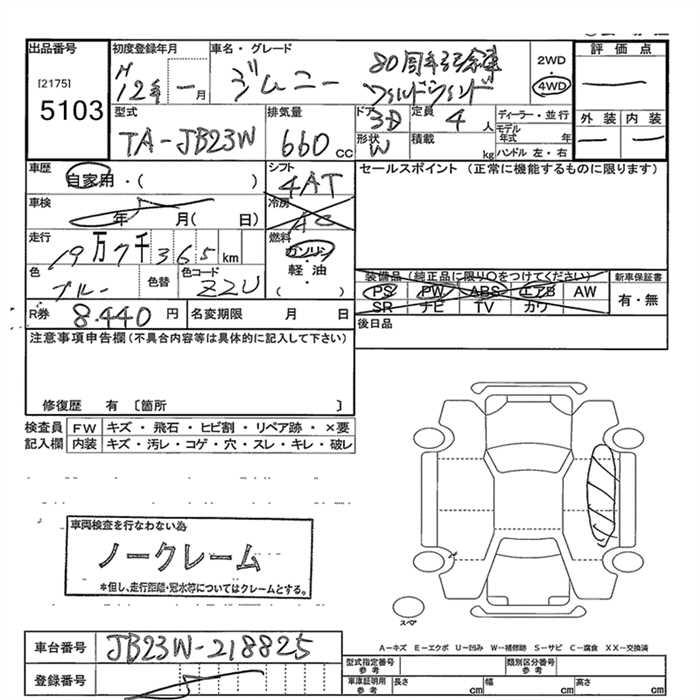 出品番号 初度登録年月 車名・グレード 2WD 評価点
[2175] H 12年 一月 ジムニー 80周年記念車 4WD
5103 ワイルドウインド
型式 排気量 ドア 3D 定員 4人 ディーラー・並行 外装 内装
TA-JB23W 660cc 形状 W 積載 kg モデル年式 年
ハンドル 左・右
車歴 自家用・( ) シフト 4AT セールスポイント (正常に機能するものに限ります)
車検 年 月( 日) 冷房 AC
走行 19万7千365km 燃料 ガソリン・軽油( )
色 ブルー 色替 色コード ZZU
装備品(純正品に限り○をつけてください) 新車保証書
PS PW ABS エアB AW 有・無
SR ナビ TV カワ
R券 8.440円 名変期限 月 日 後日品
注意事項申告欄(不具合内容等は具体的に記入して下さい)
修復歴 有 〔箇所 〕
検査員 FW キズ・飛石・ヒビ割・リペア跡・×要
記入欄 内装 キズ・汚レ・コゲ・穴・スレ・キレ・破レ
車両検査を行なわない為
ノークレーム
*但し、走行距離・冠水等についてはクレームとする。
スペア
A－キズ E－エクボ U－凹み W－補修跡 S－サビ C－腐食 XX－交換済
車台番号 JB23W-218825
型式指定番号 参考 類別区分番号 参考
登録番号
車庫証明用 参考 長さ cm 幅 cm 高さ cm